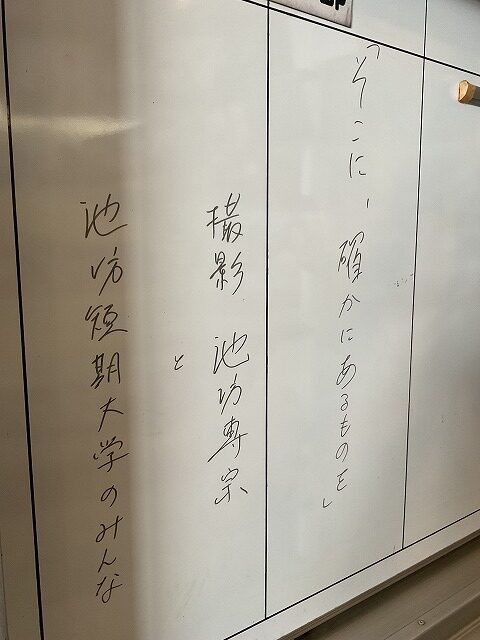 「そこに、確かにあるものを」
撮影 池坊専宗
と
池坊短期大学のみんな